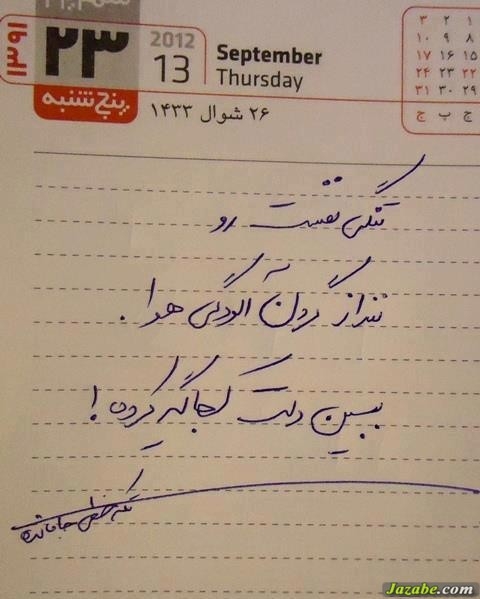 شهریور
۱۳۹۱
۲۳
پنج‌شنبه
2012
13
September
Thursday
۲۶ شوال ۱۴۳۳
۱ ۲ ۳
۸ ۹ ۱۰
۱۵ ۱۶ ۱۷
۲۲ ۲۳ ۲۴
۲۹ ۳۰ ۳۱
ج پ ج
تنگی نفست رو
ننداز گردن آلودگی هوا.
ببین دلت کجا گیر کرده!
Jazabe.com